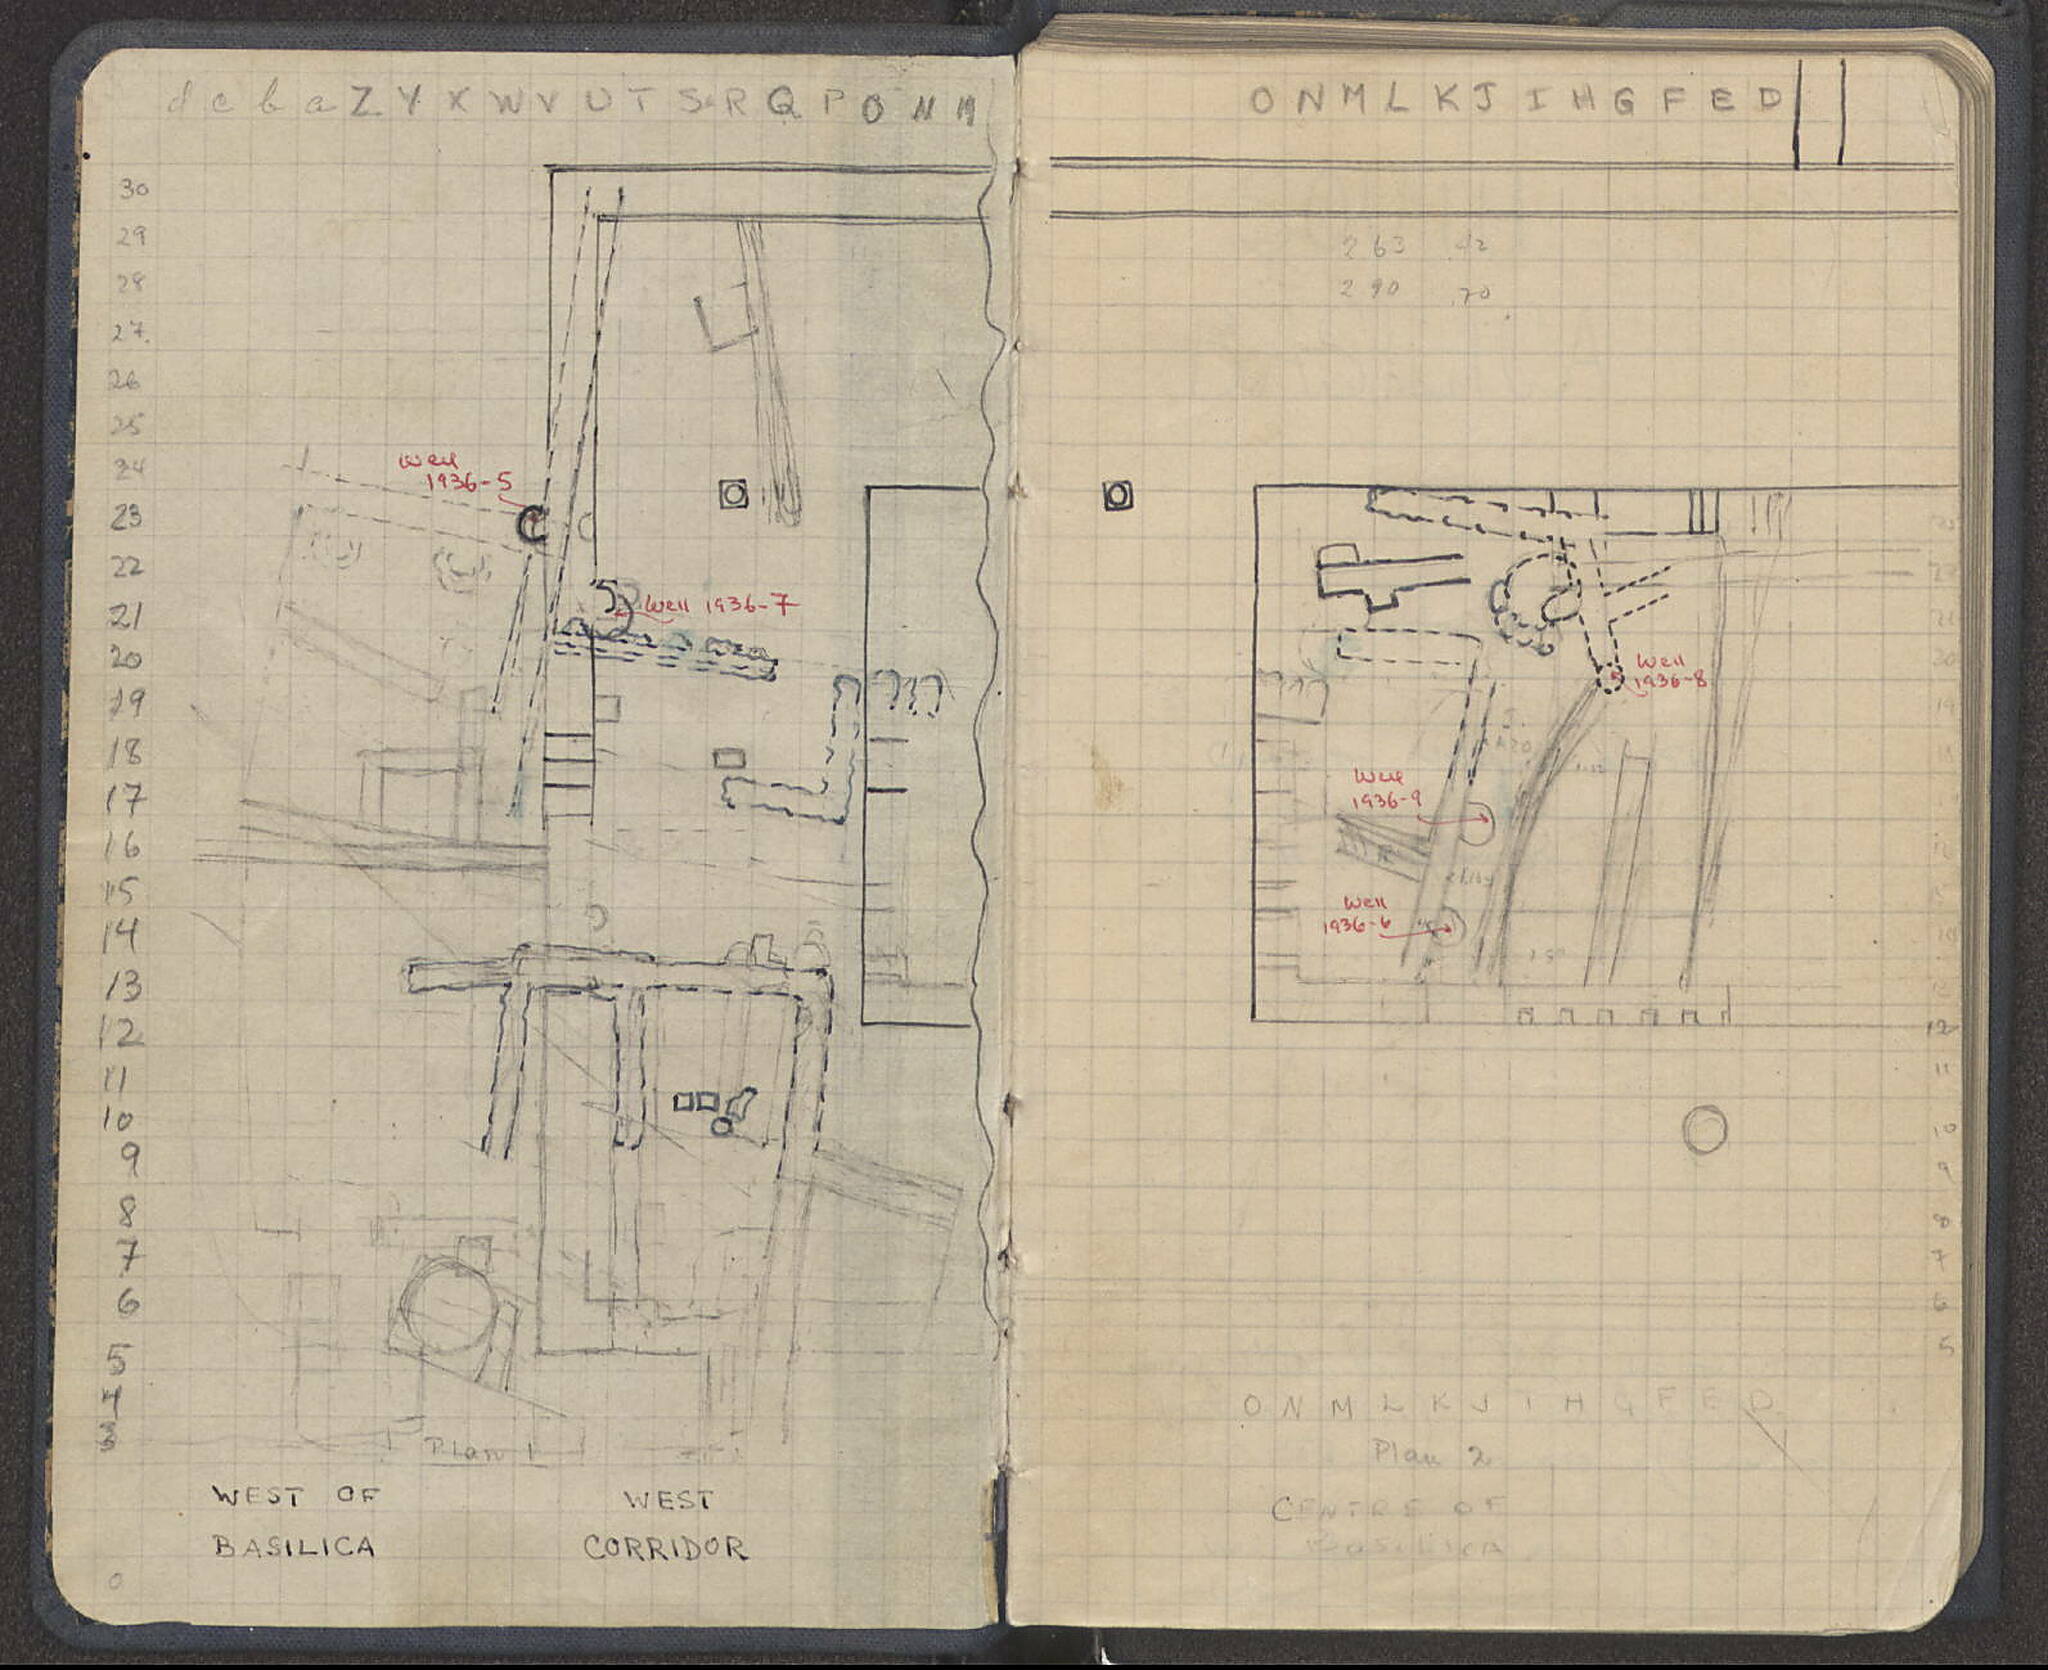 d c b a Z Y X W V U T S R Q P O N M
30
29
28
27.
26
25
24
23
22
21
20
19
18
17
16
15
14
13
12
11
10
9
8
7
6
5
4
3
0
Well
1936-5
Well 1936-7
Plan 1
WEST OF
BASILICA
WEST
CORRIDOR
O N M L K J I H G F E D
263 .42
290 .70
Well
1936-8
Well
1936-9
Well
1936-6
12
11
10
9
8
7
6
5
O N M L K J I H G F E D
Plan 2
CENTRE OF
BASILICA